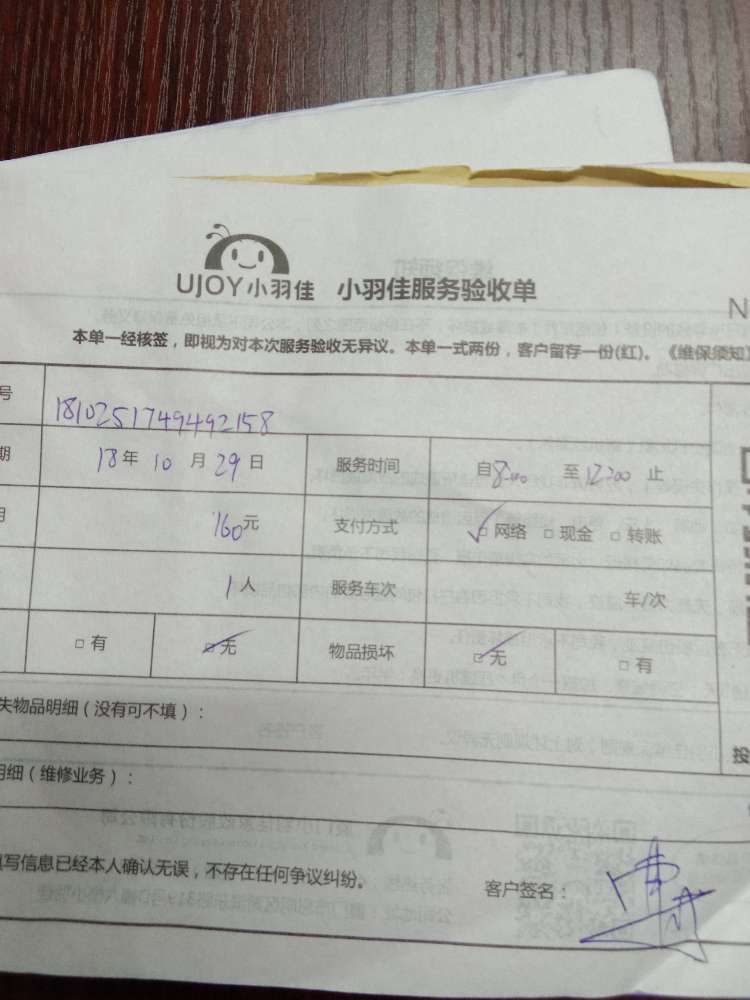 UJOY小羽佳 小羽佳服务验收单
N
本单一经核签，即视为对本次服务验收无异议。本单一式两份，客户留存一份(红)。《维保须知》
号 1810251749492158
期 18年 10月 29日 服务时间 自8:00 至12:00 止
160元 支付方式 网络 现金 转账
1人 服务车次 车/次
有 无 物品损坏 无 有
失物品明细（没有可不填）：
明细（维修业务）：
投
填写信息已经本人确认无误，不存在任何争议纠纷。 客户签名：